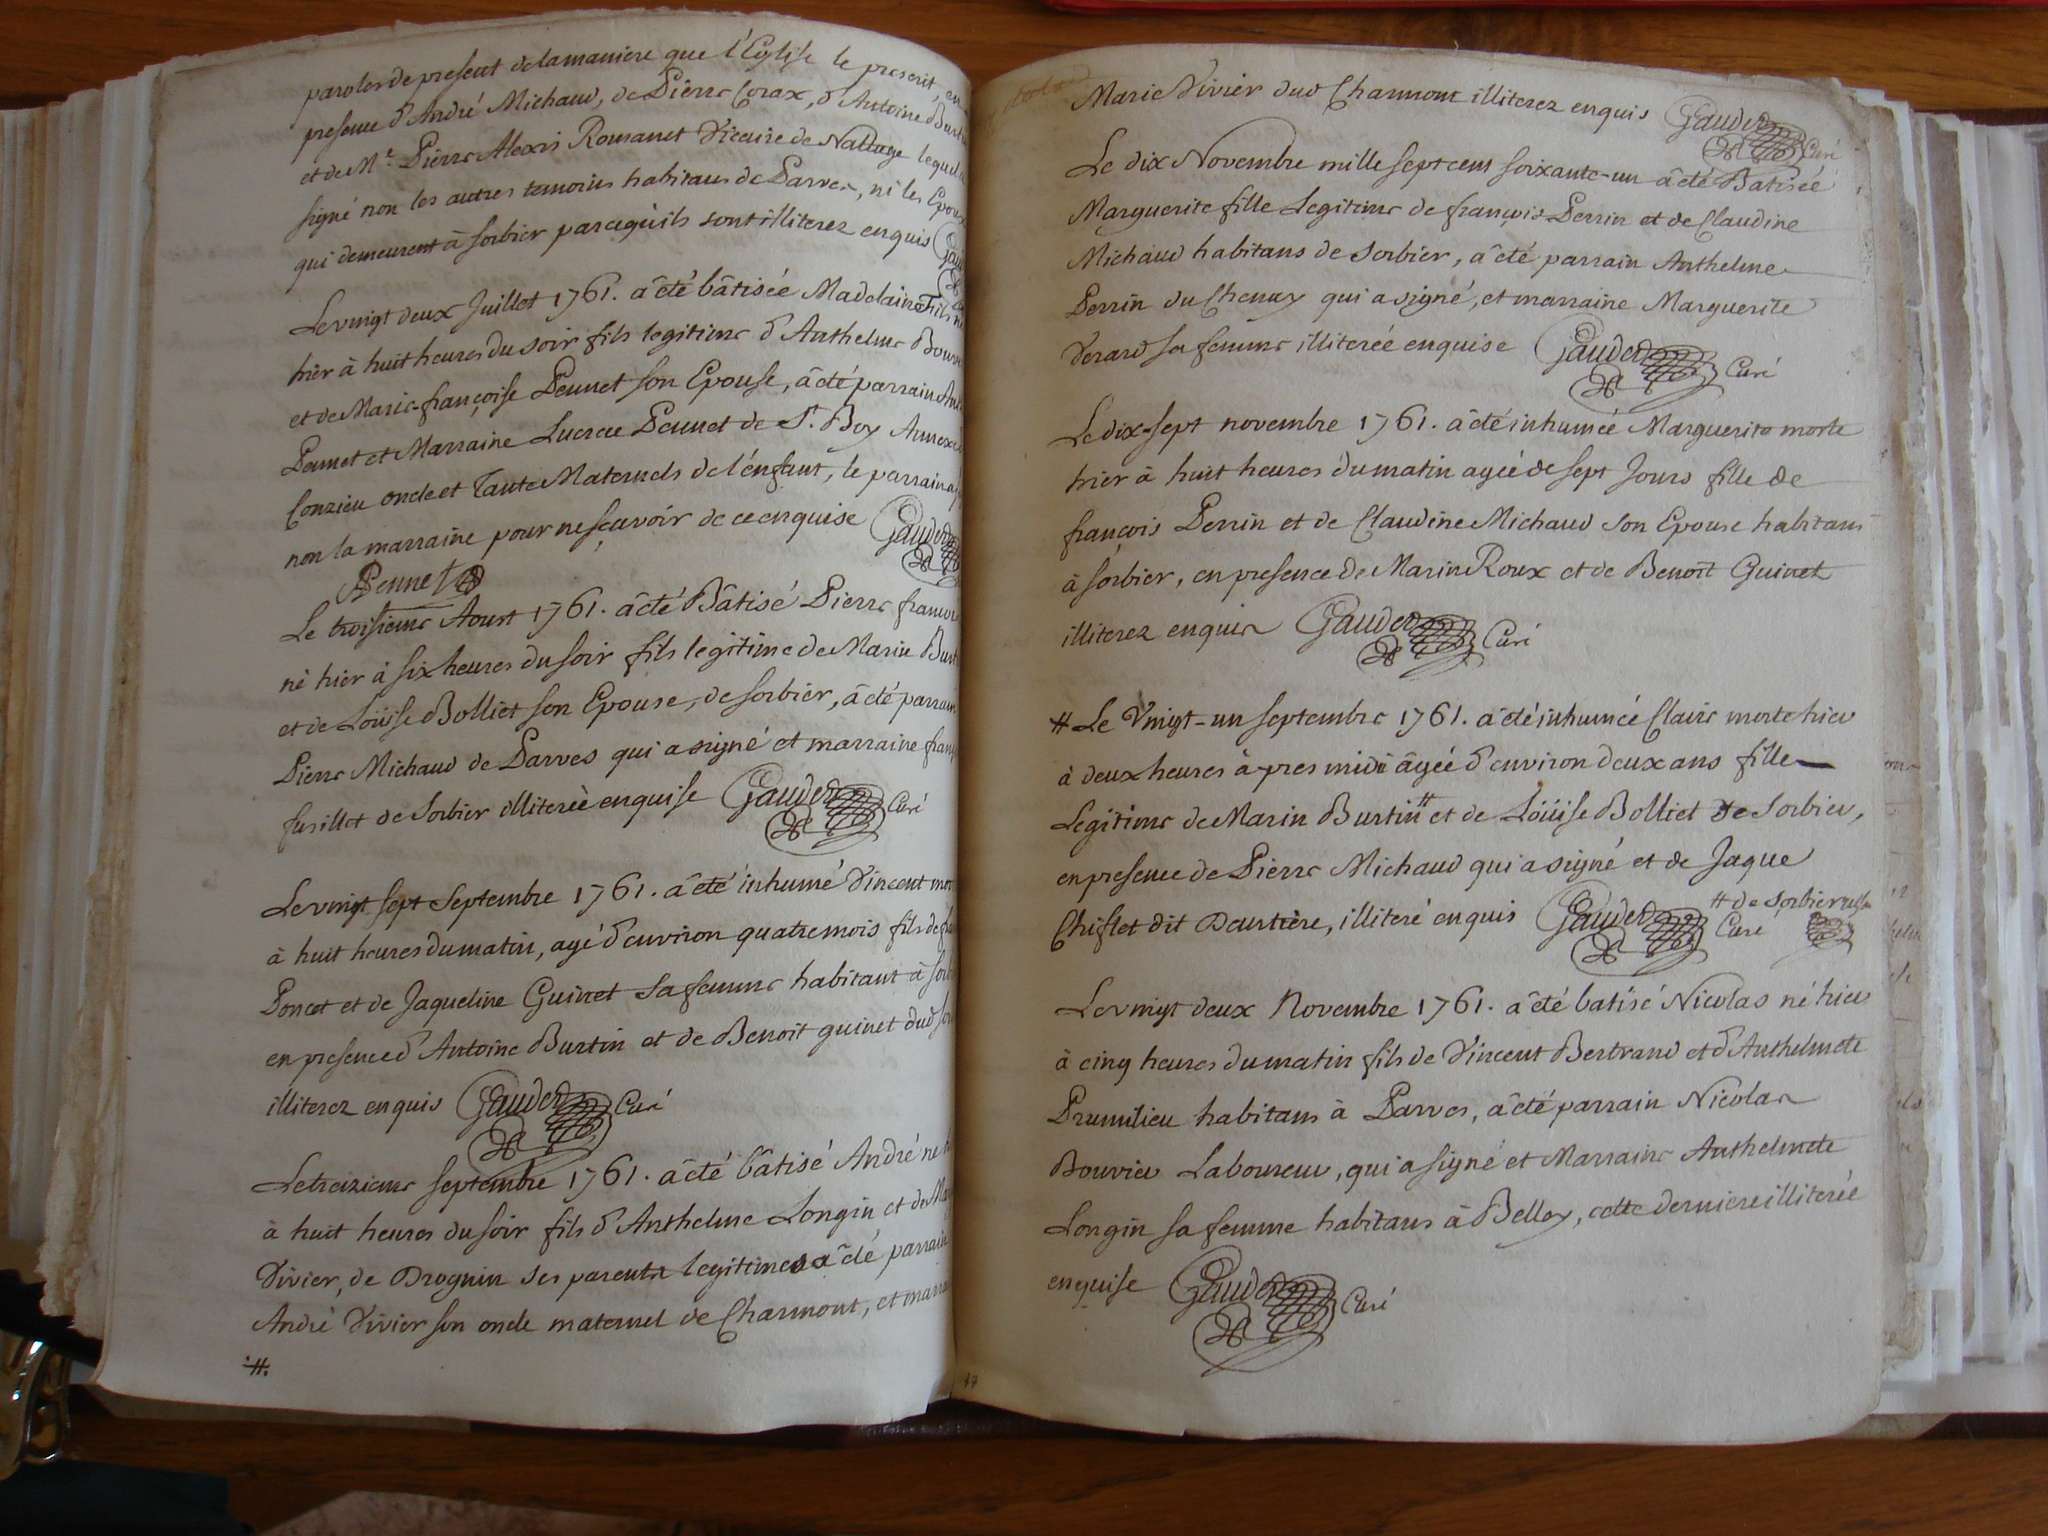 paroles de present de la maniere que l'Eglise le prescrit, en
presence d'André Michaud, de Pierre Corax, d'Antoine Burtin
et de Mr. Pierre Alexis Roumanet Vicaire de Nattage lequel a
signé non les autres temoins habitans de Parves, ni les Epoux
qui demeurent à Sorbier parcequ'ils sont illiterez enquis Gaudet
Le vingt deux Juillet 1761. a été bâtisée Madelaine
hier à huit heures du soir fils legitime d'Anthelme
et de Marie-françoise Pennet son Epouse, a été parrain
Pennet et Marraine Lucrece Pennet de St. Boy Annexe
Conzieu oncle et Tante Maternels de l'énfant, le parrain a
non la marraine pour ne sçavoir de ce enquise Gaudet
Pennet
Le troisieme Aoust 1761. a été Bâtisé Pierre françois
né hier à six heures du soir fils legitime de Marin Burtin
et de Loüise Bolliet son Epouse, de Sorbier, a été parrain
Pierre Michaud de Parves qui a signé et marraine
fusillet de Sorbier illiterée enquise Gaudet Curé
Le vingt sept Septembre 1761. a été inhumé Vincent mort
à huit heures du matin, agé d'environ quatre mois fils de
Poncet et de Jaqueline Guinet sa femme habitant à
en presence d'Antoine Burtin et de Benoit guinet dud
illiterez enquis Gaudet Curé
Le treizieme septembre 1761. a été bâtisé André né
à huit heures du soir fils d'Anthelme Longin et de
Vivier, de Brognin ses parents legitimes a été parrain
André Vivier son oncle maternel de Charmont, et marraine
#.
Marie Vivier dud Charmont illiterez enquis Gaudet Curé
Le dix Novembre mille sept cent soixante-un a été Batisée
Marguerite fille Legitime de françois Perrin et de Claudine
Michaud habitans de Sorbier, a été parrain Anthelme
Perrin du Chenay qui a signé, et marraine Marguerite
Verard sa femme illiterée enquise Gaudet Curé
Le dix-sept novembre 1761. a été inhumée Marguerite morte
hier à huit heures du matin agée de sept Jours fille de
françois Perrin et de Claudine Michaud son Epouse habitans
à Sorbier, en presence de Marin Roux et de Benoit Guinet
illiterez enquis Gaudet Curé
# Le Vingt-un septembre 1761. a été inhumée Claire morte hier
à deux heures à pres midi âgée d'environ deux ans fille
Legitime de Marin Burtin # et de Loüise Bolliet de Sorbier,
en presence de Pierre Michaud qui a signé et de Jaque
Chiflet dit Deurtière, illiteré enquis Gaudet Curé # de Sorbier
Le vingt deux Novembre 1761. a été batisé Nicolas né hier
à cinq heures du matin fils de Vincent Bertrand et d'Anthelmete
Prumilieu habitans à Parves, a été parrain Nicolas
Bouvier Laboureur, qui a signé et Marraine Anthelmete
Longin sa femme habitans à Belley, cette derniere illiterée
enquise Gaudet Curé